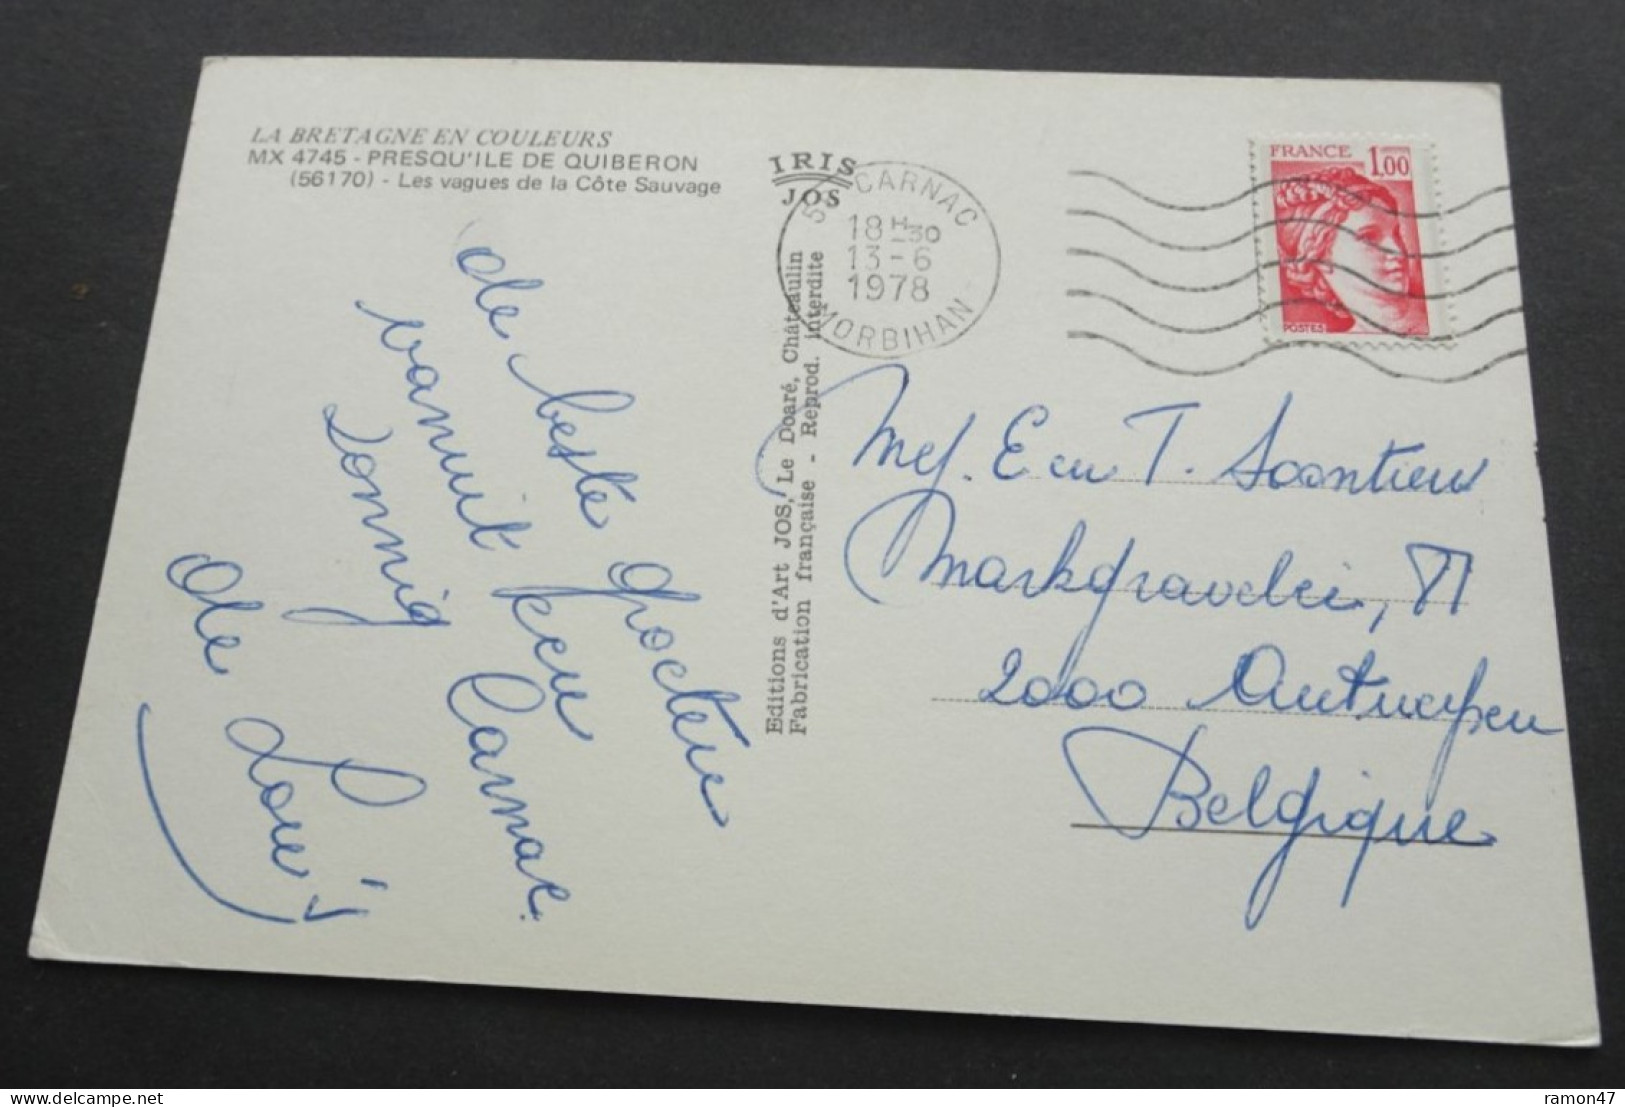 LA BRETAGNE EN COULEURS
MX 4745 - PRESQU'ILE DE QUIBERON
(56170) - Les vagues de la Côte Sauvage
de beste groeten
vanuit een
zonnig Carnac.
de Lou's
IRIS
JOS
Editions d'Art JOS, Le Doaré, Châteaulin
Fabrication française - Reprod. interdite
CARNAC
18 H 30
13-6
1978
MORBIHAN
FRANCE 1,00
POSTES
E en T. Soontiens
Markgravelei, 77
2000 Antwerpen
Belgique
ramon47